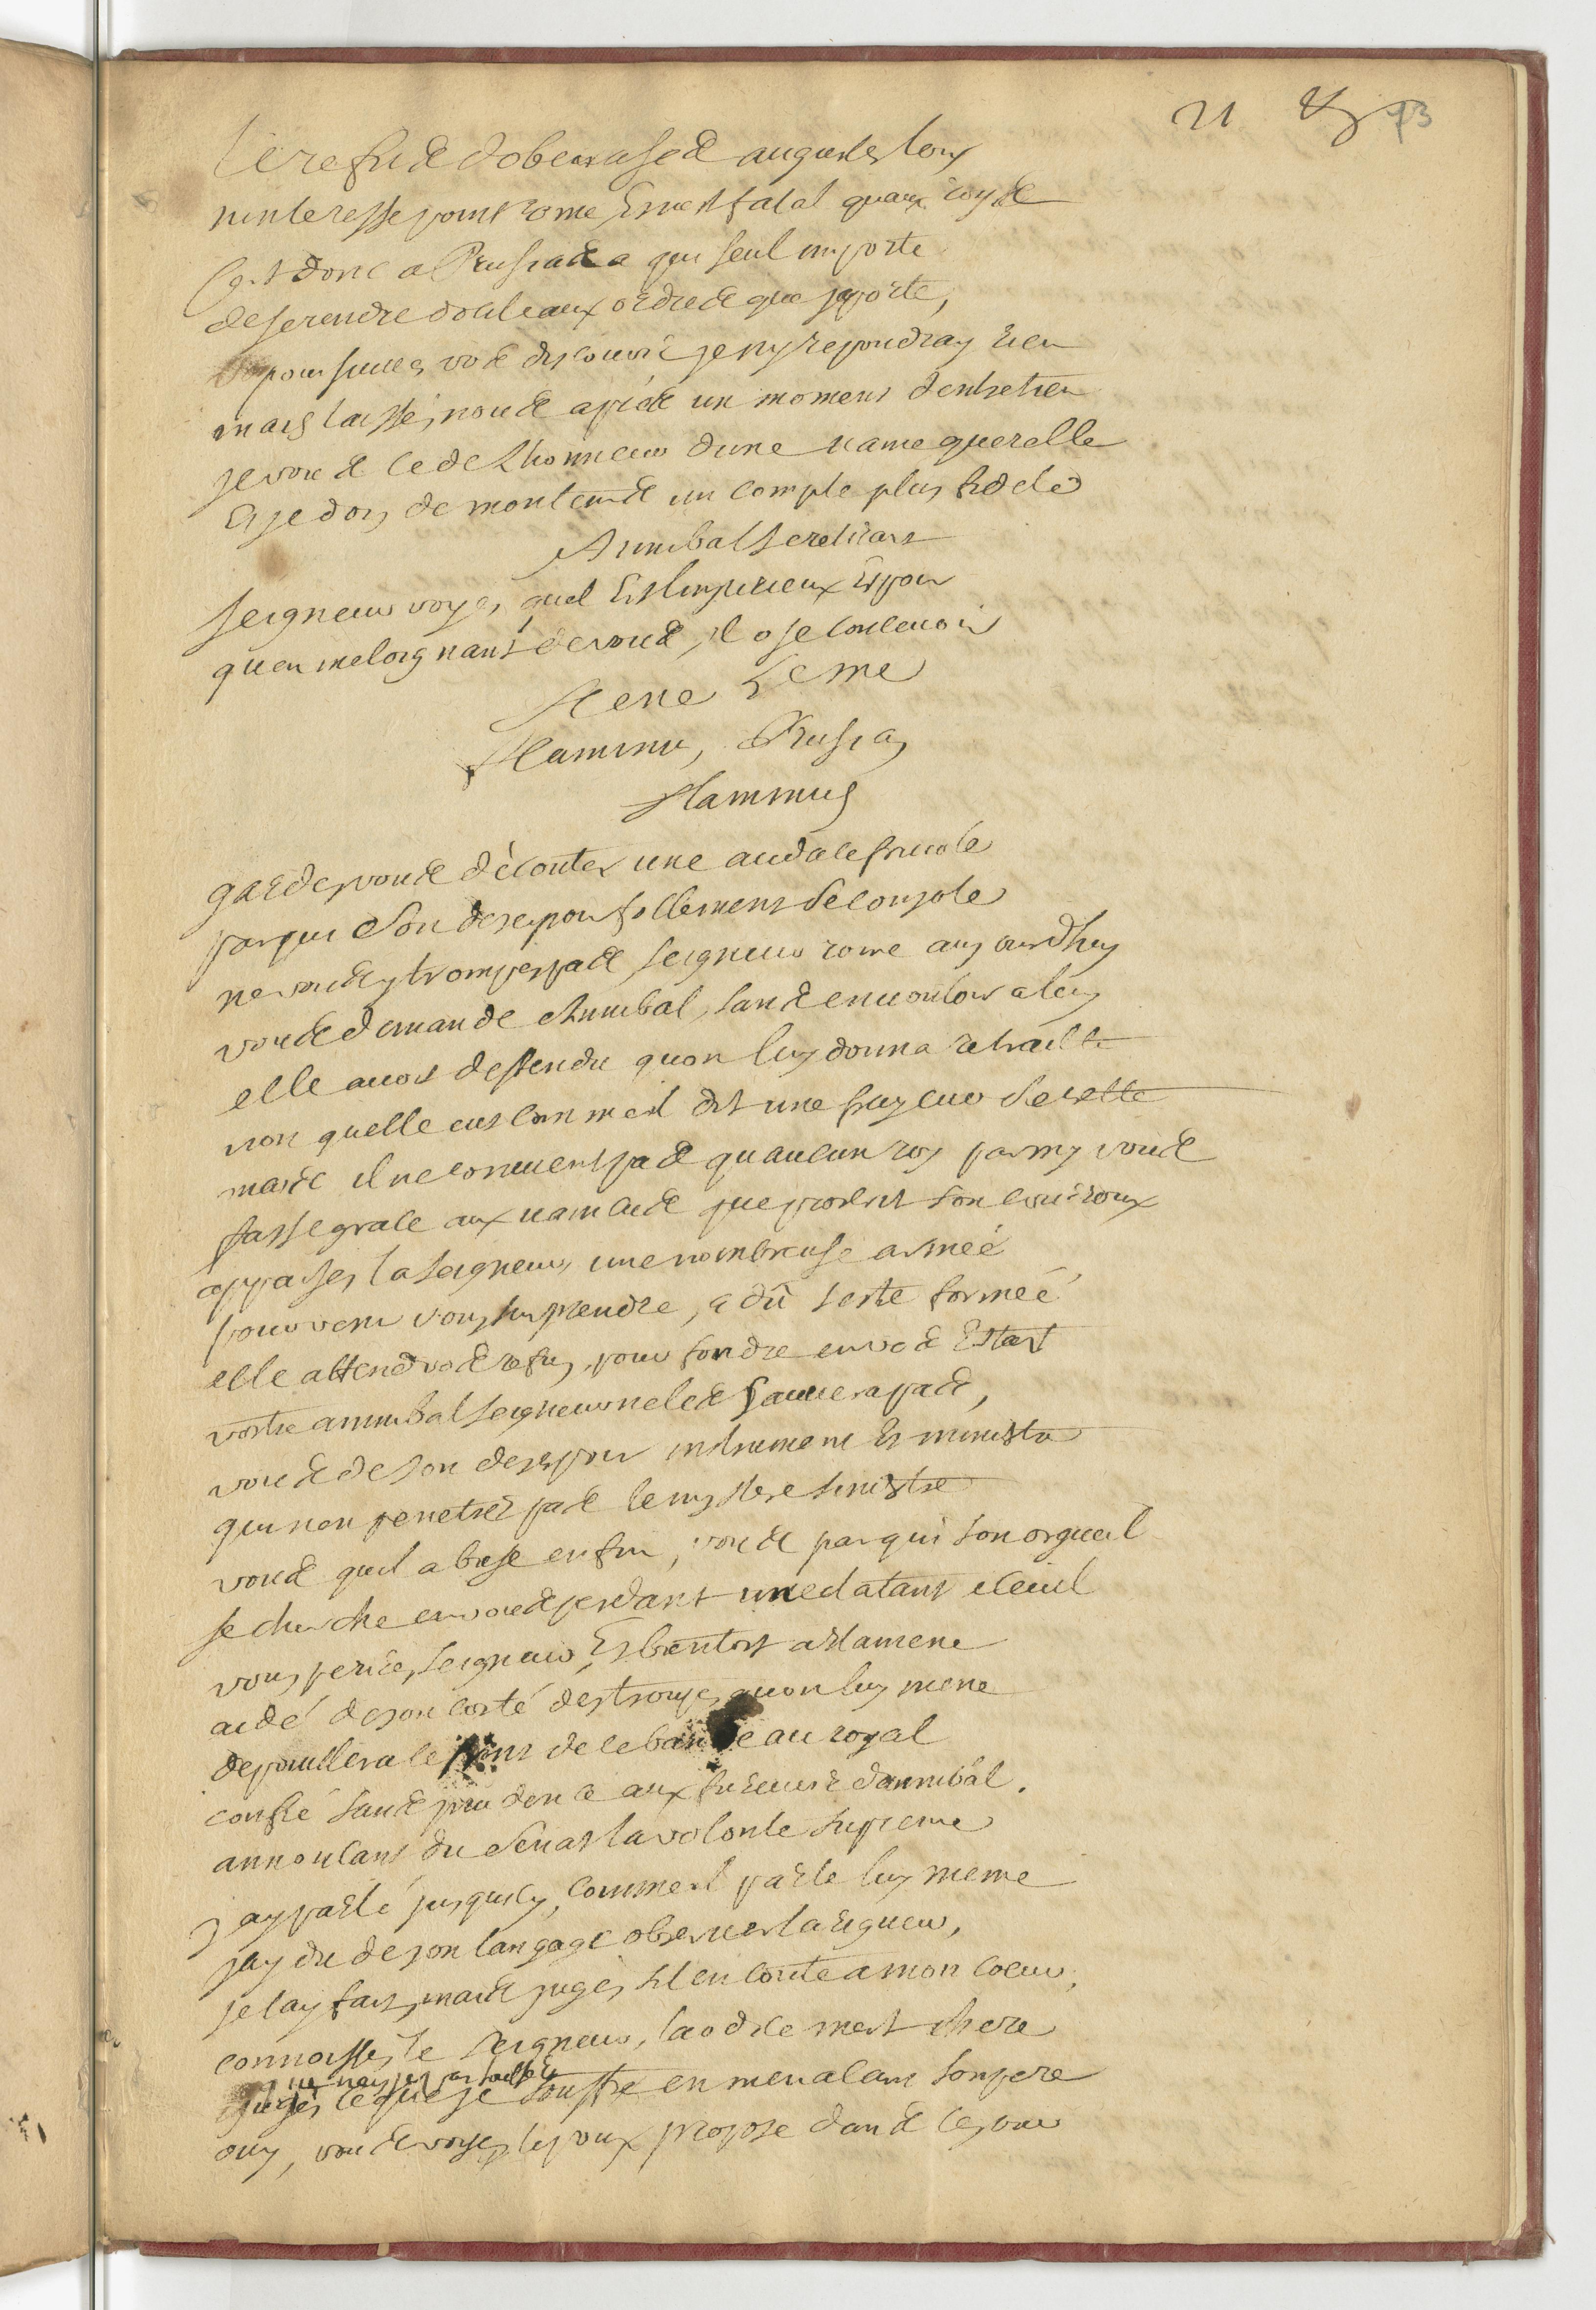 21 93
le refus d'obeir a ses augustes loys
n'interesse point rome, Et n'est fatal quaux roys
C'est donc a Prusias a qui seul importe
de se rendre docile aux ordres que j'aporte,
poursuives vos discours je n'y repondray rien
mais laissés, nous aprés un moment d'entretien
je vous cede l'honneur d'une vaine querelle
Et je dois de mon temps un compte plus fidele
Annibal se retirant
seigneur voyes, quel Est l'imperieux Espoir
qu'en m'eloignant de vous, il ose concevoir
scene 4eme
flaminius, Prusias
flaminius
gardes vous d'écouter une audace frivole
par qui son desespoir follement se console
ne vous y trompes pas, seigneur rome aujourdhuy
vous demande Annibal, sans en vouloir a luy
elle avoit deffendu quon luy donna retraitte
non quelle eut comme il dit une frayeur secrette
mais il ne convient pas qu'aucun roy parmy vous
fasse grace aux vaincus que proscrit son couroux
appaises, la seigneur, une nombreuse armée
pour venir vous surprendre, a dû s'estre formée
elle attend vos refus, pour fondre en vos Estats
vostre annibal seigneur ne les sauvera pas,
vous de son desespoir instrument Et ministre
qui n'en penetrés pas le mystere sinistre
vous qu'il abuse enfin, vous par qui son orgueil
se cherche en vous perdant un eclatant ecueil
vous perirés, seigneur, Et bientost artamene
aidé de son costé des troupes quon luy mene
depouillera le front de ce bandeau royal
confié sans prudence aux fureurs d'annibal.
annonçant du Senat la volonte supreme
j'ay parlé jusqu'icy, comme il parle luy meme
j'ay du de son langage observer la rigueur,
je l'ay fait, mais jugés s'il en coute a mon coeur,
connoissés le seigneur, laodice m'est chere
jugés ce que je souffre en menaçant son pere
ouy, vous voyes l'epoux proposé dans ces vues